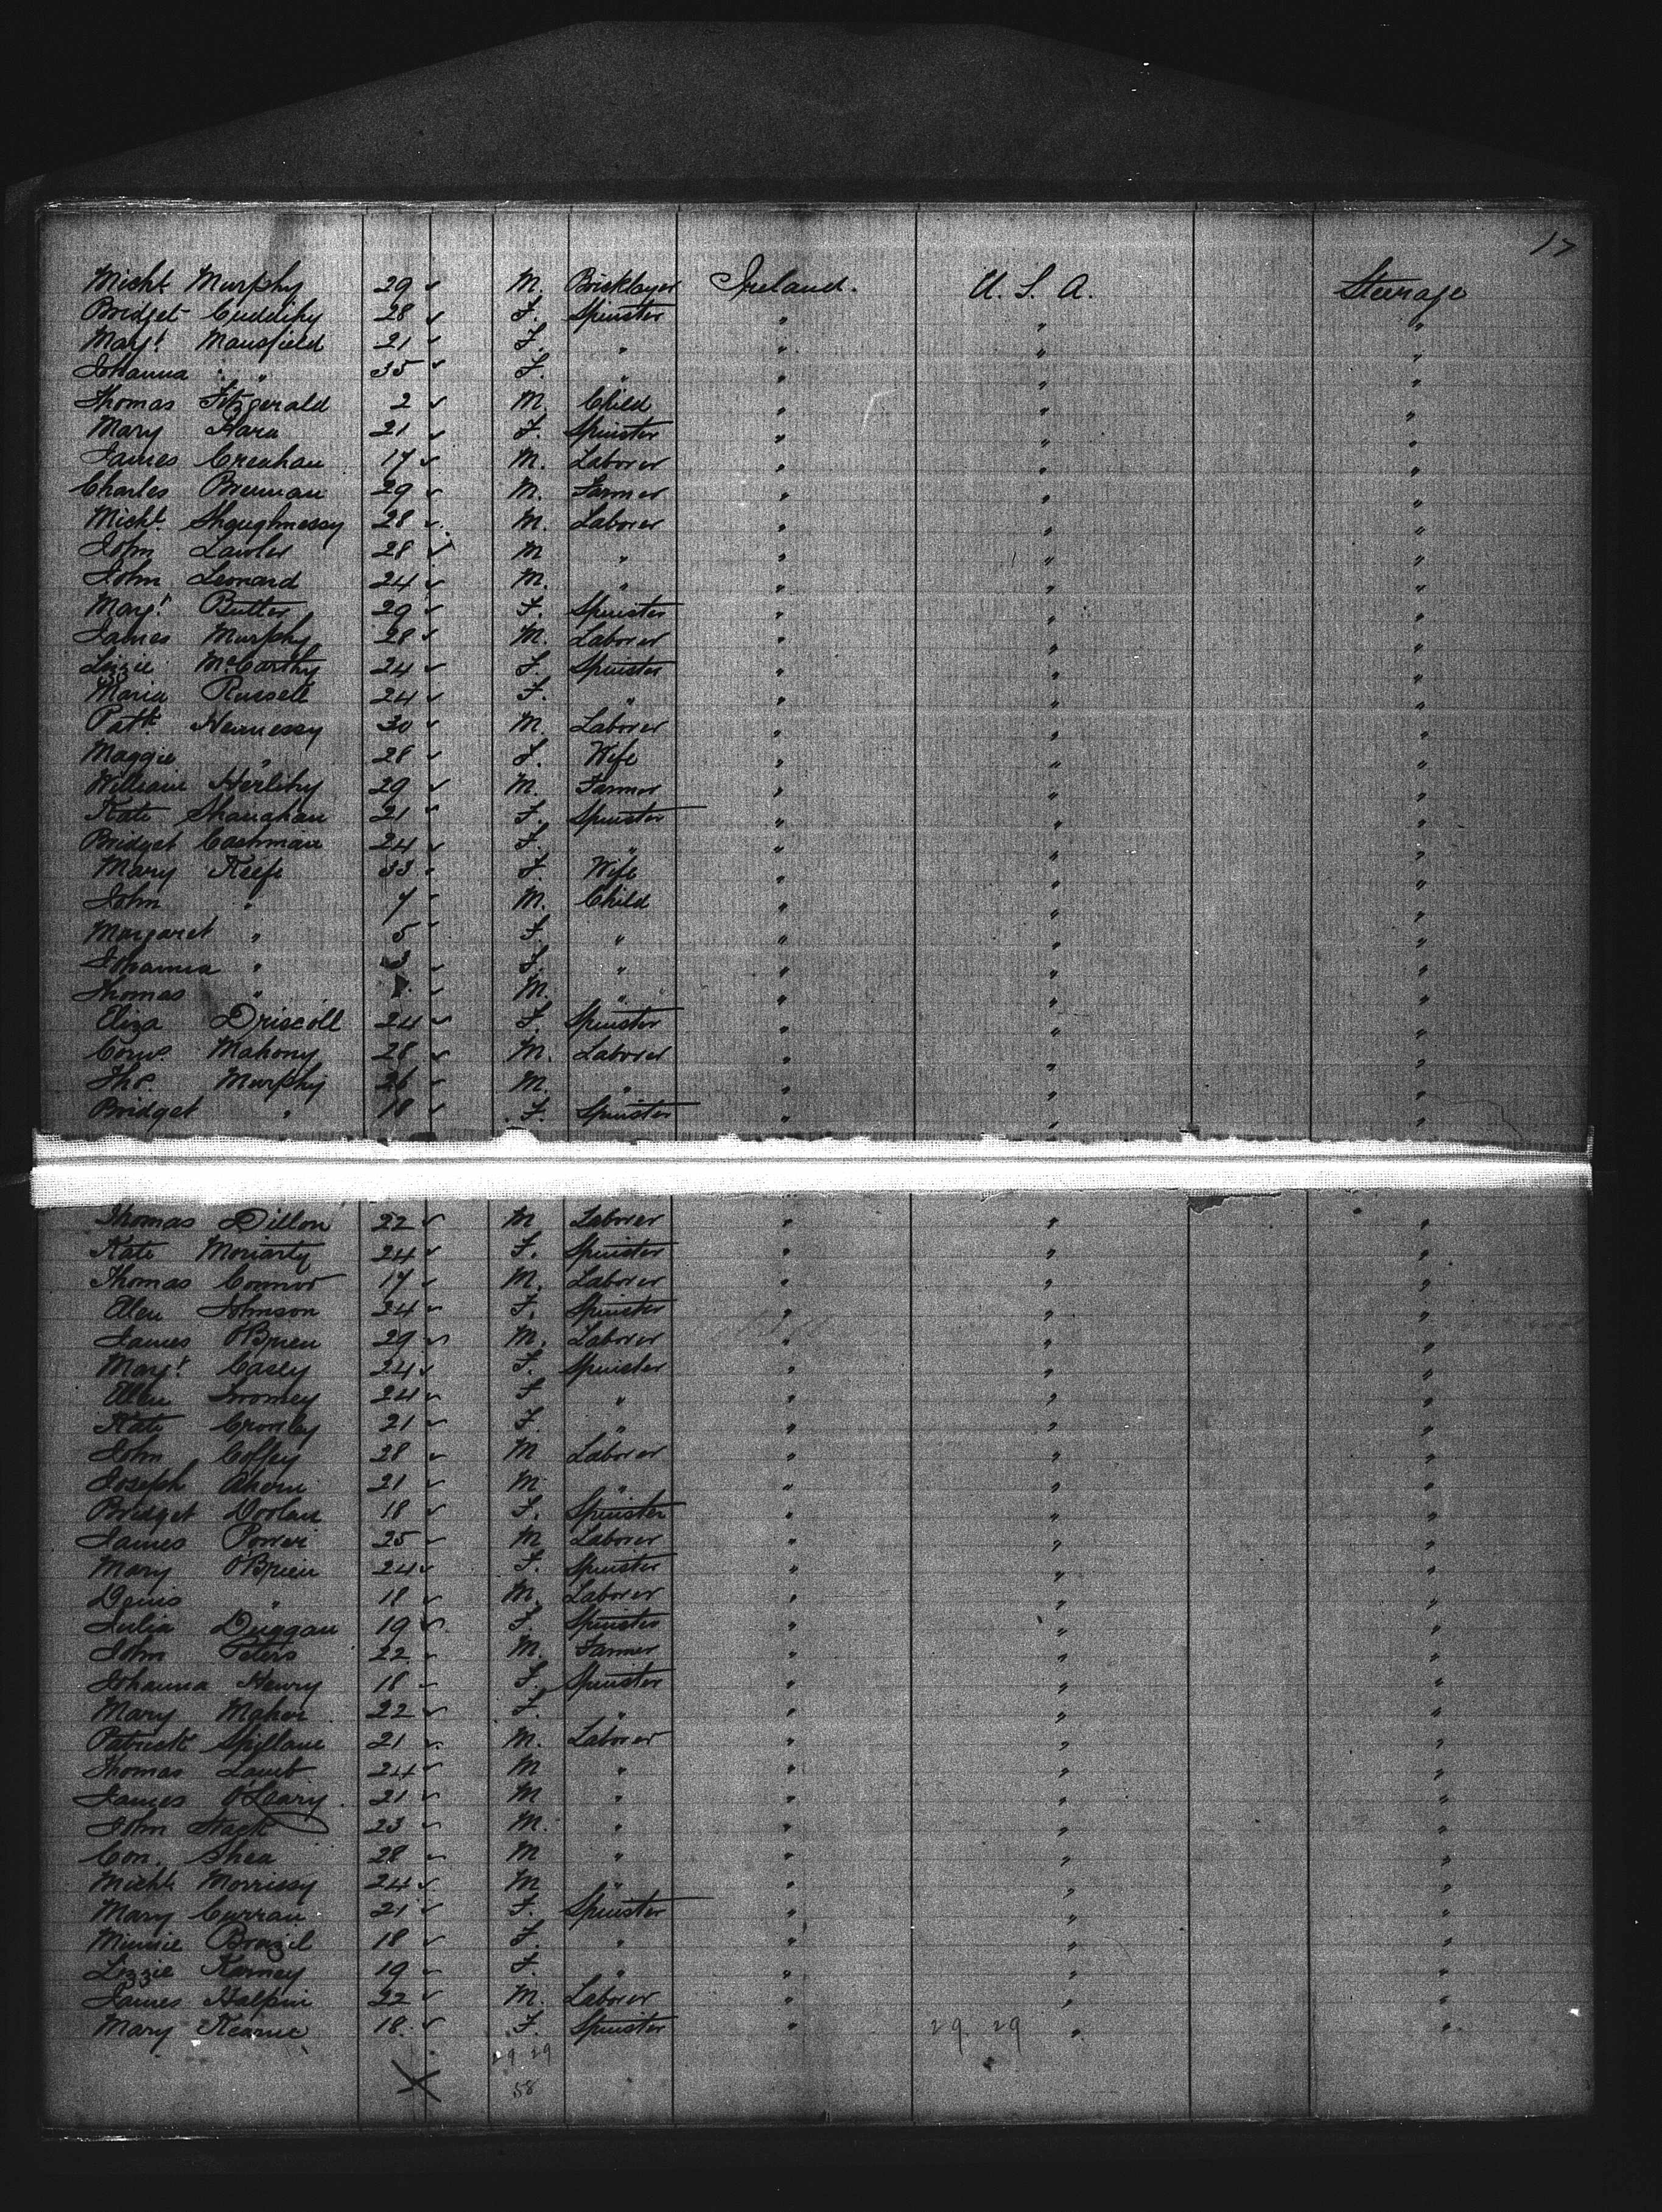 17
Michl. Murphy 29 ✓ M. Bricklayer Ireland. U. S. A. Steerage
Bridget Cuddihy 28 ✓ F. Spinster " " "
Margt. Mansfield 21 ✓ F. " " " "
Johanna " 35 ✓ F. " " " "
Thomas Fitzgerald 2 ✓ M. Child " " "
Mary Hara 21 ✓ F. Spinster " " "
James Crenhan 17 ✓ M. Laborer " " "
Charles Brennan 29 ✓ M. Farmer " " "
Michl. Shaughnessy 28 ✓ M. Laborer " " "
John Lawler 28 ✓ M " " " "
John Leonard 24 ✓ M. " " " "
Margt. Butler 29 ✓ F. Spinster " " "
James Murphy 28 ✓ M. Laborer " " "
Lizzie McCarthy 24 ✓ F. Spinster " " "
Maria Russell 24 ✓ F. " " " "
Patk. Hennessy 30 ✓ M. Laborer " " "
Maggie " 28 ✓ F. Wife " " "
William Herlihy 29 ✓ M. Farmer " " "
Kate Shanahan 21 ✓ F. Spinster " " "
Bridget Cashman 24 ✓ F. " " " "
Mary Keefe 33 ✓ F. Wife " " "
John " 7 ✓ M. Child " " "
Margaret " 5 ✓ F. " " " "
Johanna " 3 ✓ F. " " " "
Thomas " ✓ M. " " " "
Eliza Driscoll 24 ✓ F. Spinster " " "
Corns. Mahony 28 ✓ M. Laborer " " "
Thos. Murphy 26 ✓ M. " " " "
Bridget " 18 ✓ F. Spinster " " "
Thomas Dillon 22 ✓ M Laborer " " "
Kate Moriarty 24 ✓ F. Spinster " " "
Thomas Connor 17 ✓ M. Laborer " " "
Ellen Johnson 24 ✓ F. Spinster " " "
James O'Brien 29 ✓ M. Laborer " " "
Margt. Casey 24 ✓ F. Spinster " " "
Ellen Twomey 24 ✓ F " " " "
Kate Crowley 21 ✓ F. " " " "
John Coffey 28 ✓ M Laborer " " "
Joseph Ahern 21 ✓ M " " " "
Bridget Doolan 18 ✓ F. Spinster " " "
James Power 25 ✓ M Laborer " " "
Mary O'Brien 24 ✓ F. Spinster " " "
Denis " 18 ✓ M. Laborer " " "
Julia Duggan 19 ✓ F. Spinster " " "
John Peters 22 ✓ M. Farmer " " "
Johanna Henry 18 ✓ F. Spinster " " "
Mary Maher 22 ✓ F. " " " "
Patrick Spillane 21 ✓ M. Laborer " " "
Thomas Lamb 24 ✓ M " " " "
James O'Leary 21 ✓ M " " " "
John Stack 23 ✓ M. " " " "
Con. Shea 28 ✓ M " " " "
Michl. Morrissy 24 ✓ M " " " "
Mary Curran 21 ✓ F. Spinster " " "
Minnie Brazil 18 ✓ F. " " " "
Lizzie Karney 19 ✓ F. " " " "
James Halpin 22 ✓ M. Laborer " " "
Mary Kearne 18 ✓ F. Spinster " 29 29 " "
29 29
X 58